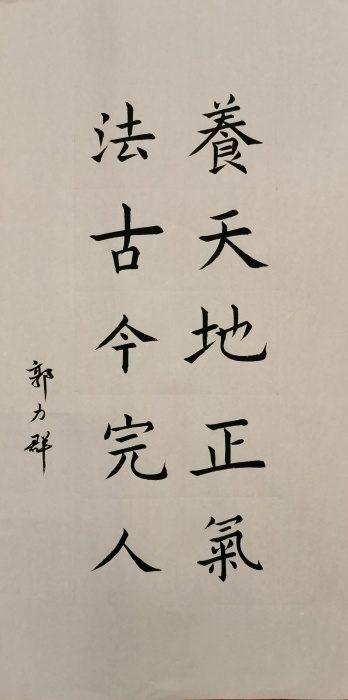 養天地正氣
法古今完人
郭力群